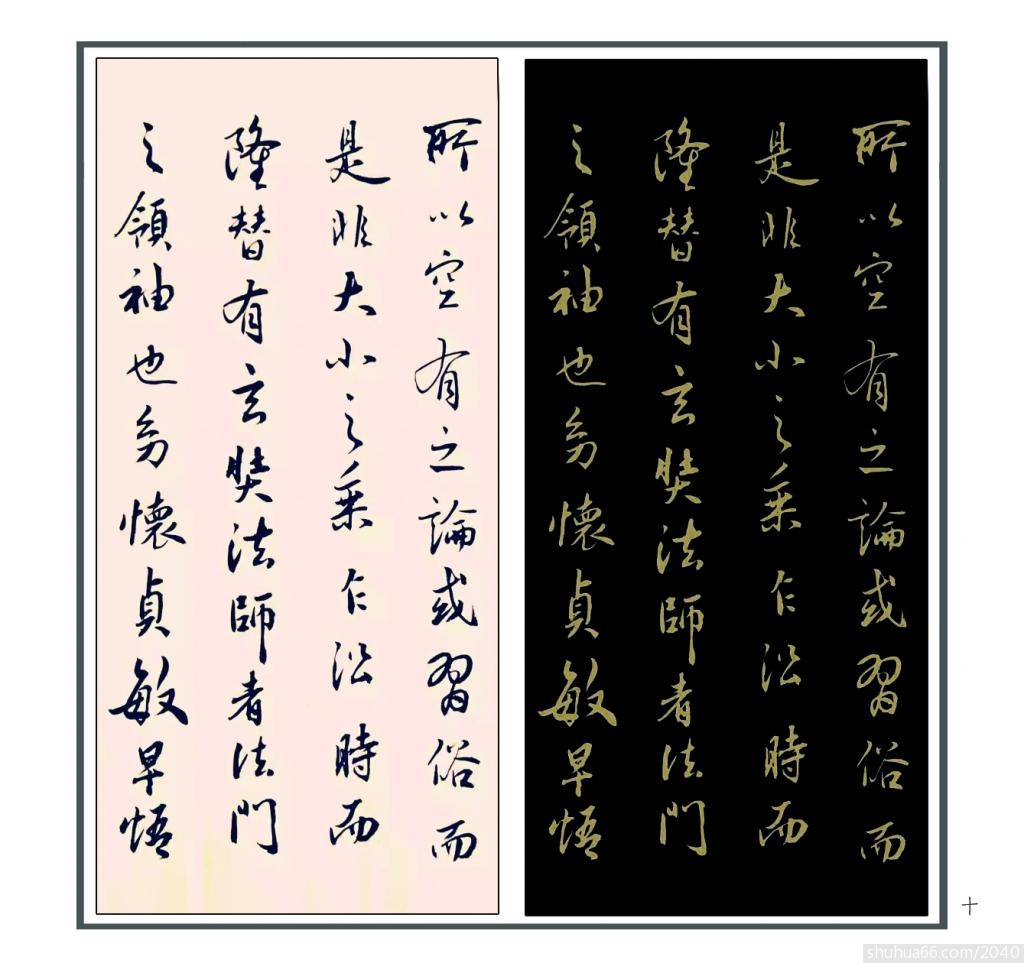 所以空有之論或習俗而
是非大小之乗乍沿時而
隆替有玄奘法師者法門
之領袖也幼懷貞敏早悟
所以空有之論或習俗而
是非大小之乗乍沿時而
隆替有玄奘法師者法門
之領袖也幼懷貞敏早悟
十
shuhua66.com/2040